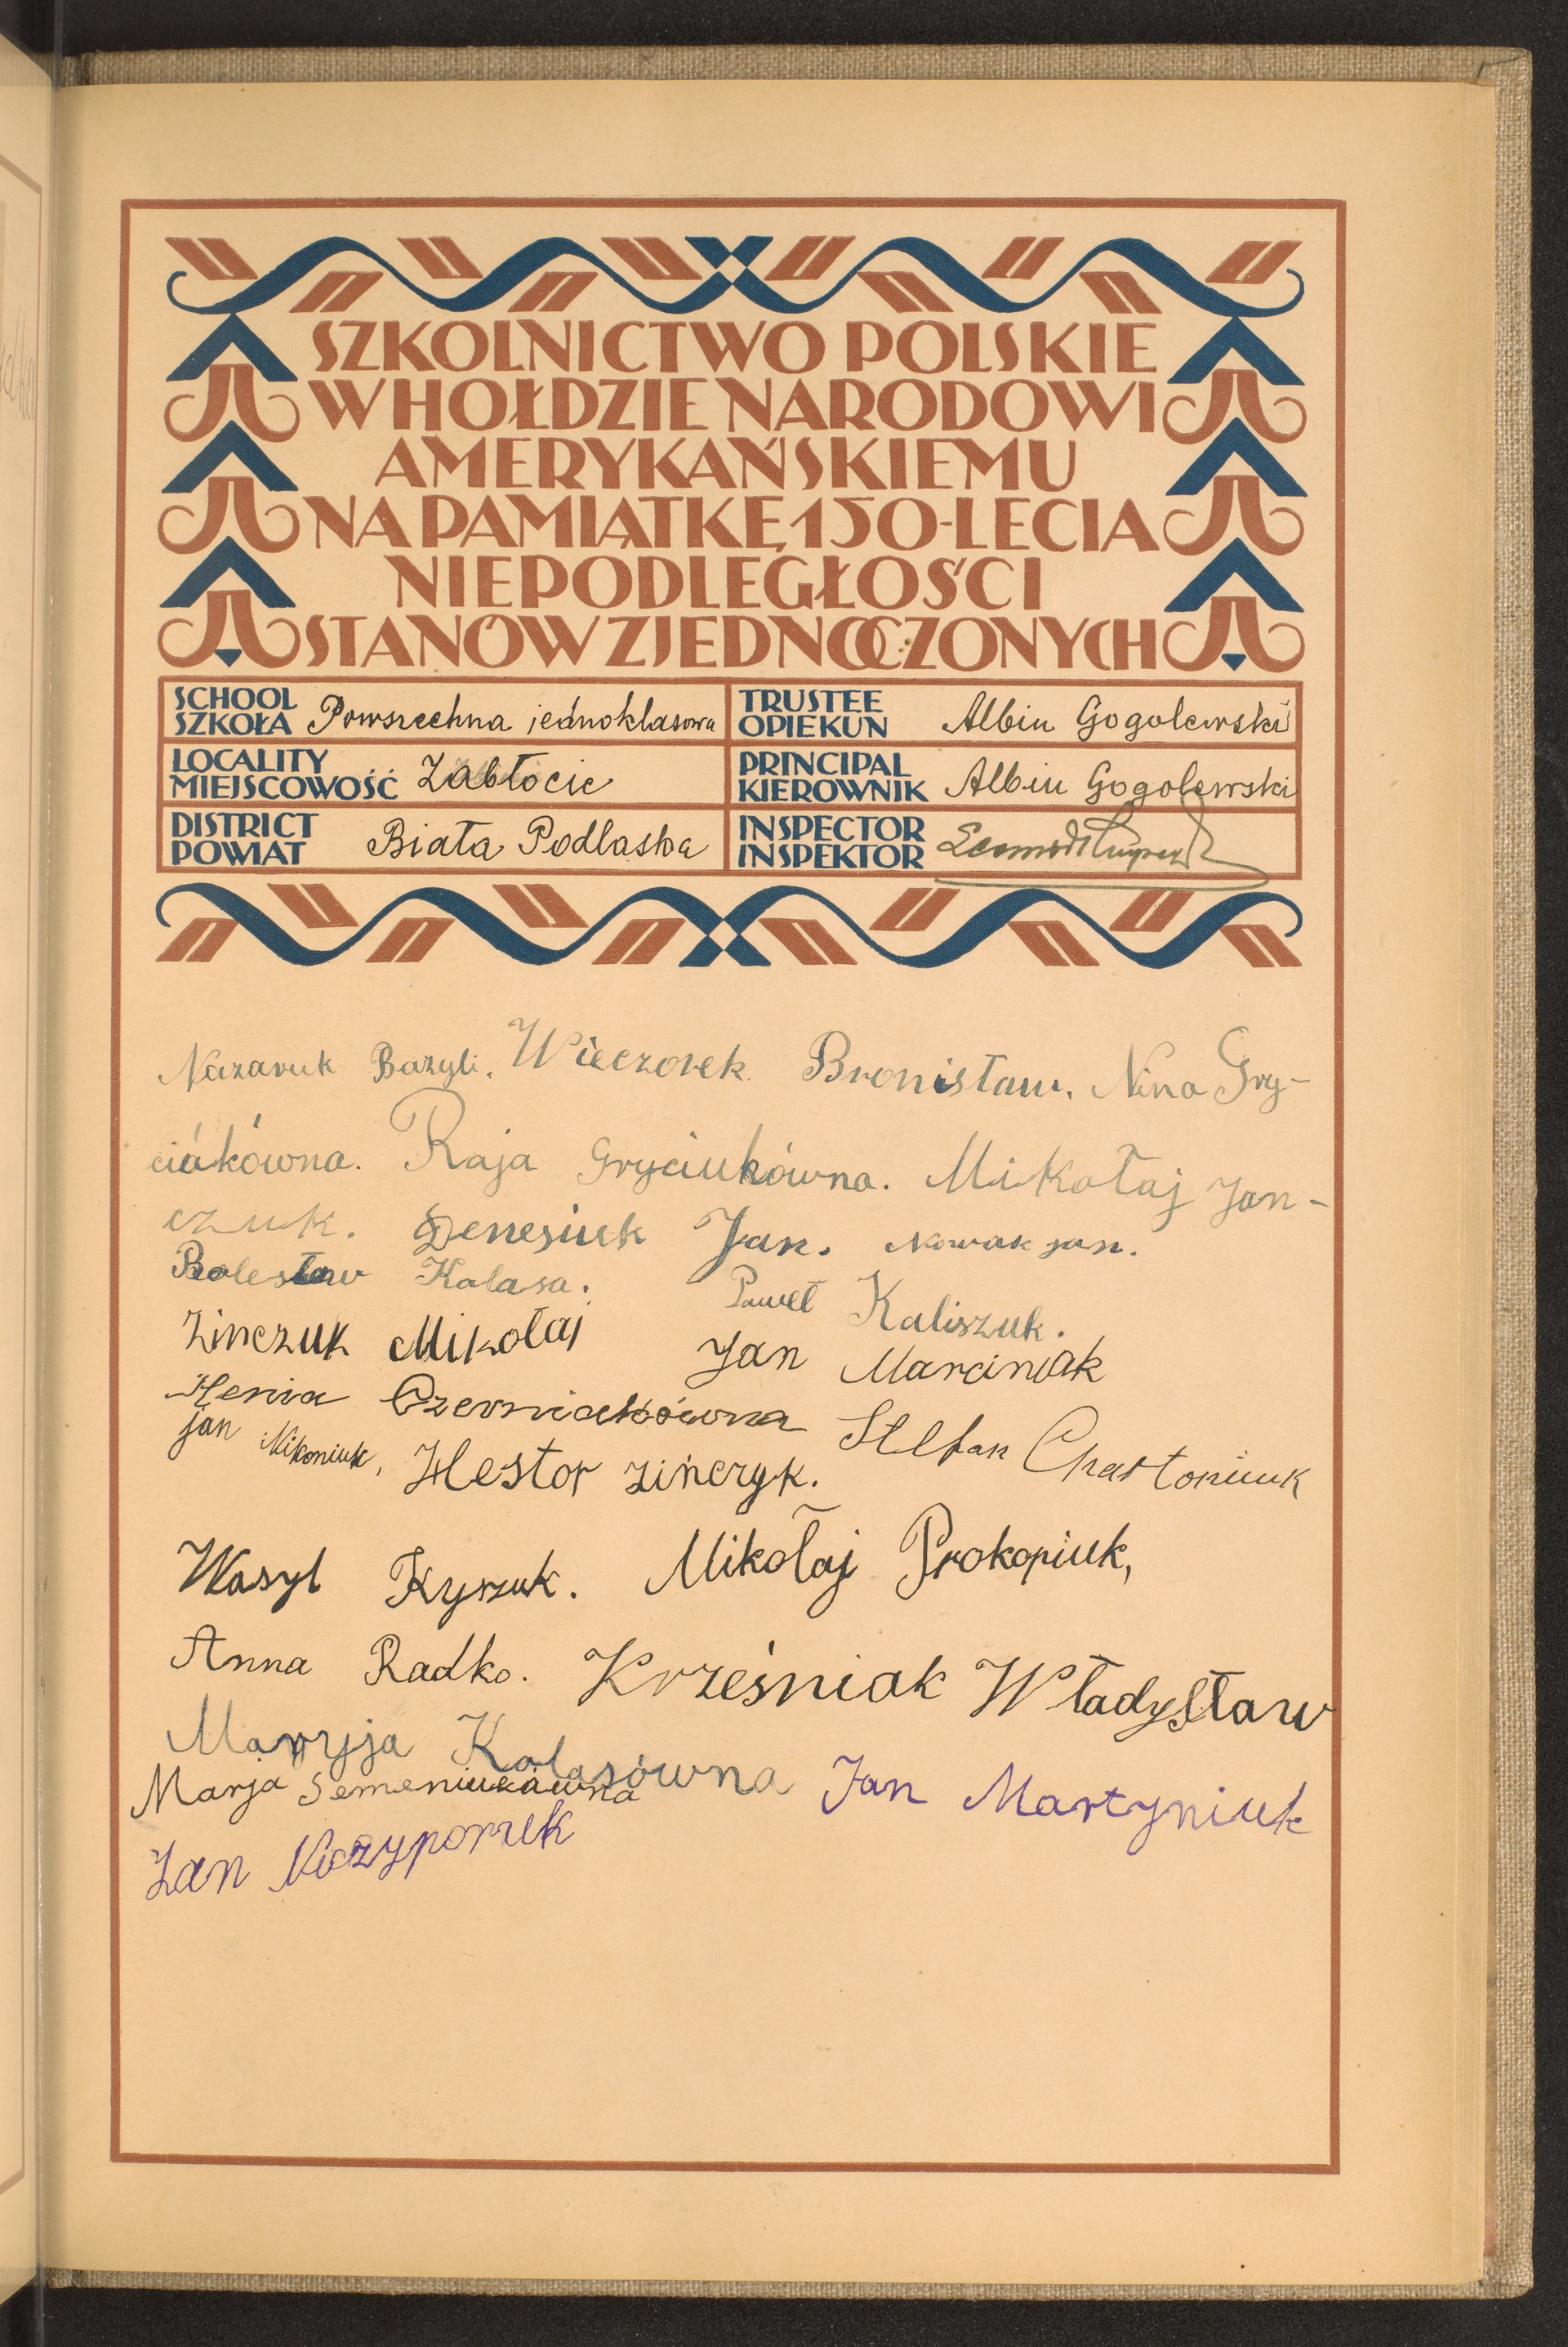 SZKOLNICTWO POLSKIE
W HOŁDZIE NARODOWI
AMERYKAŃSKIEMU
NA PAMIĄTKĘ 150-LECIA
NIEPODLEGŁOŚCI
STANÓW ZJEDNOCZONYCH
SCHOOL
SZKOŁA Powszechna jednoklasowa
TRUSTEE
OPIEKUN Albin Gogolewski
LOCALITY
MIEJSCOWOŚĆ Zabłocie
PRINCIPAL
KIEROWNIK Albin Gogolewski
DISTRICT
POWIAT Biała Podlaska
INSPECTOR
INSPEKTOR
Nazaruk Bazyli. Wieczorek Bronisław. Nina Gry-
ciákówna. Raja Gryciukówna. Mikołaj Jan-
czuk. Denesiuk Jan. Nowak Jan.
Bolesław Kalasa. Paweł Kaliszuk.
Zińczuk Mikołaj Jan Marciniak
Henia Czerniakówna Stefan Chartoniuuk
Jan Nikoniuk, Nestor Zińczyk.
Wasyl Kyszuk. Mikołaj Prokopiuk,
Anna Radko. Krześniak Władysław
Maryja Kalasówna Jan Martyniuk
Marja Semeniukówna
Jan Niczyporuk